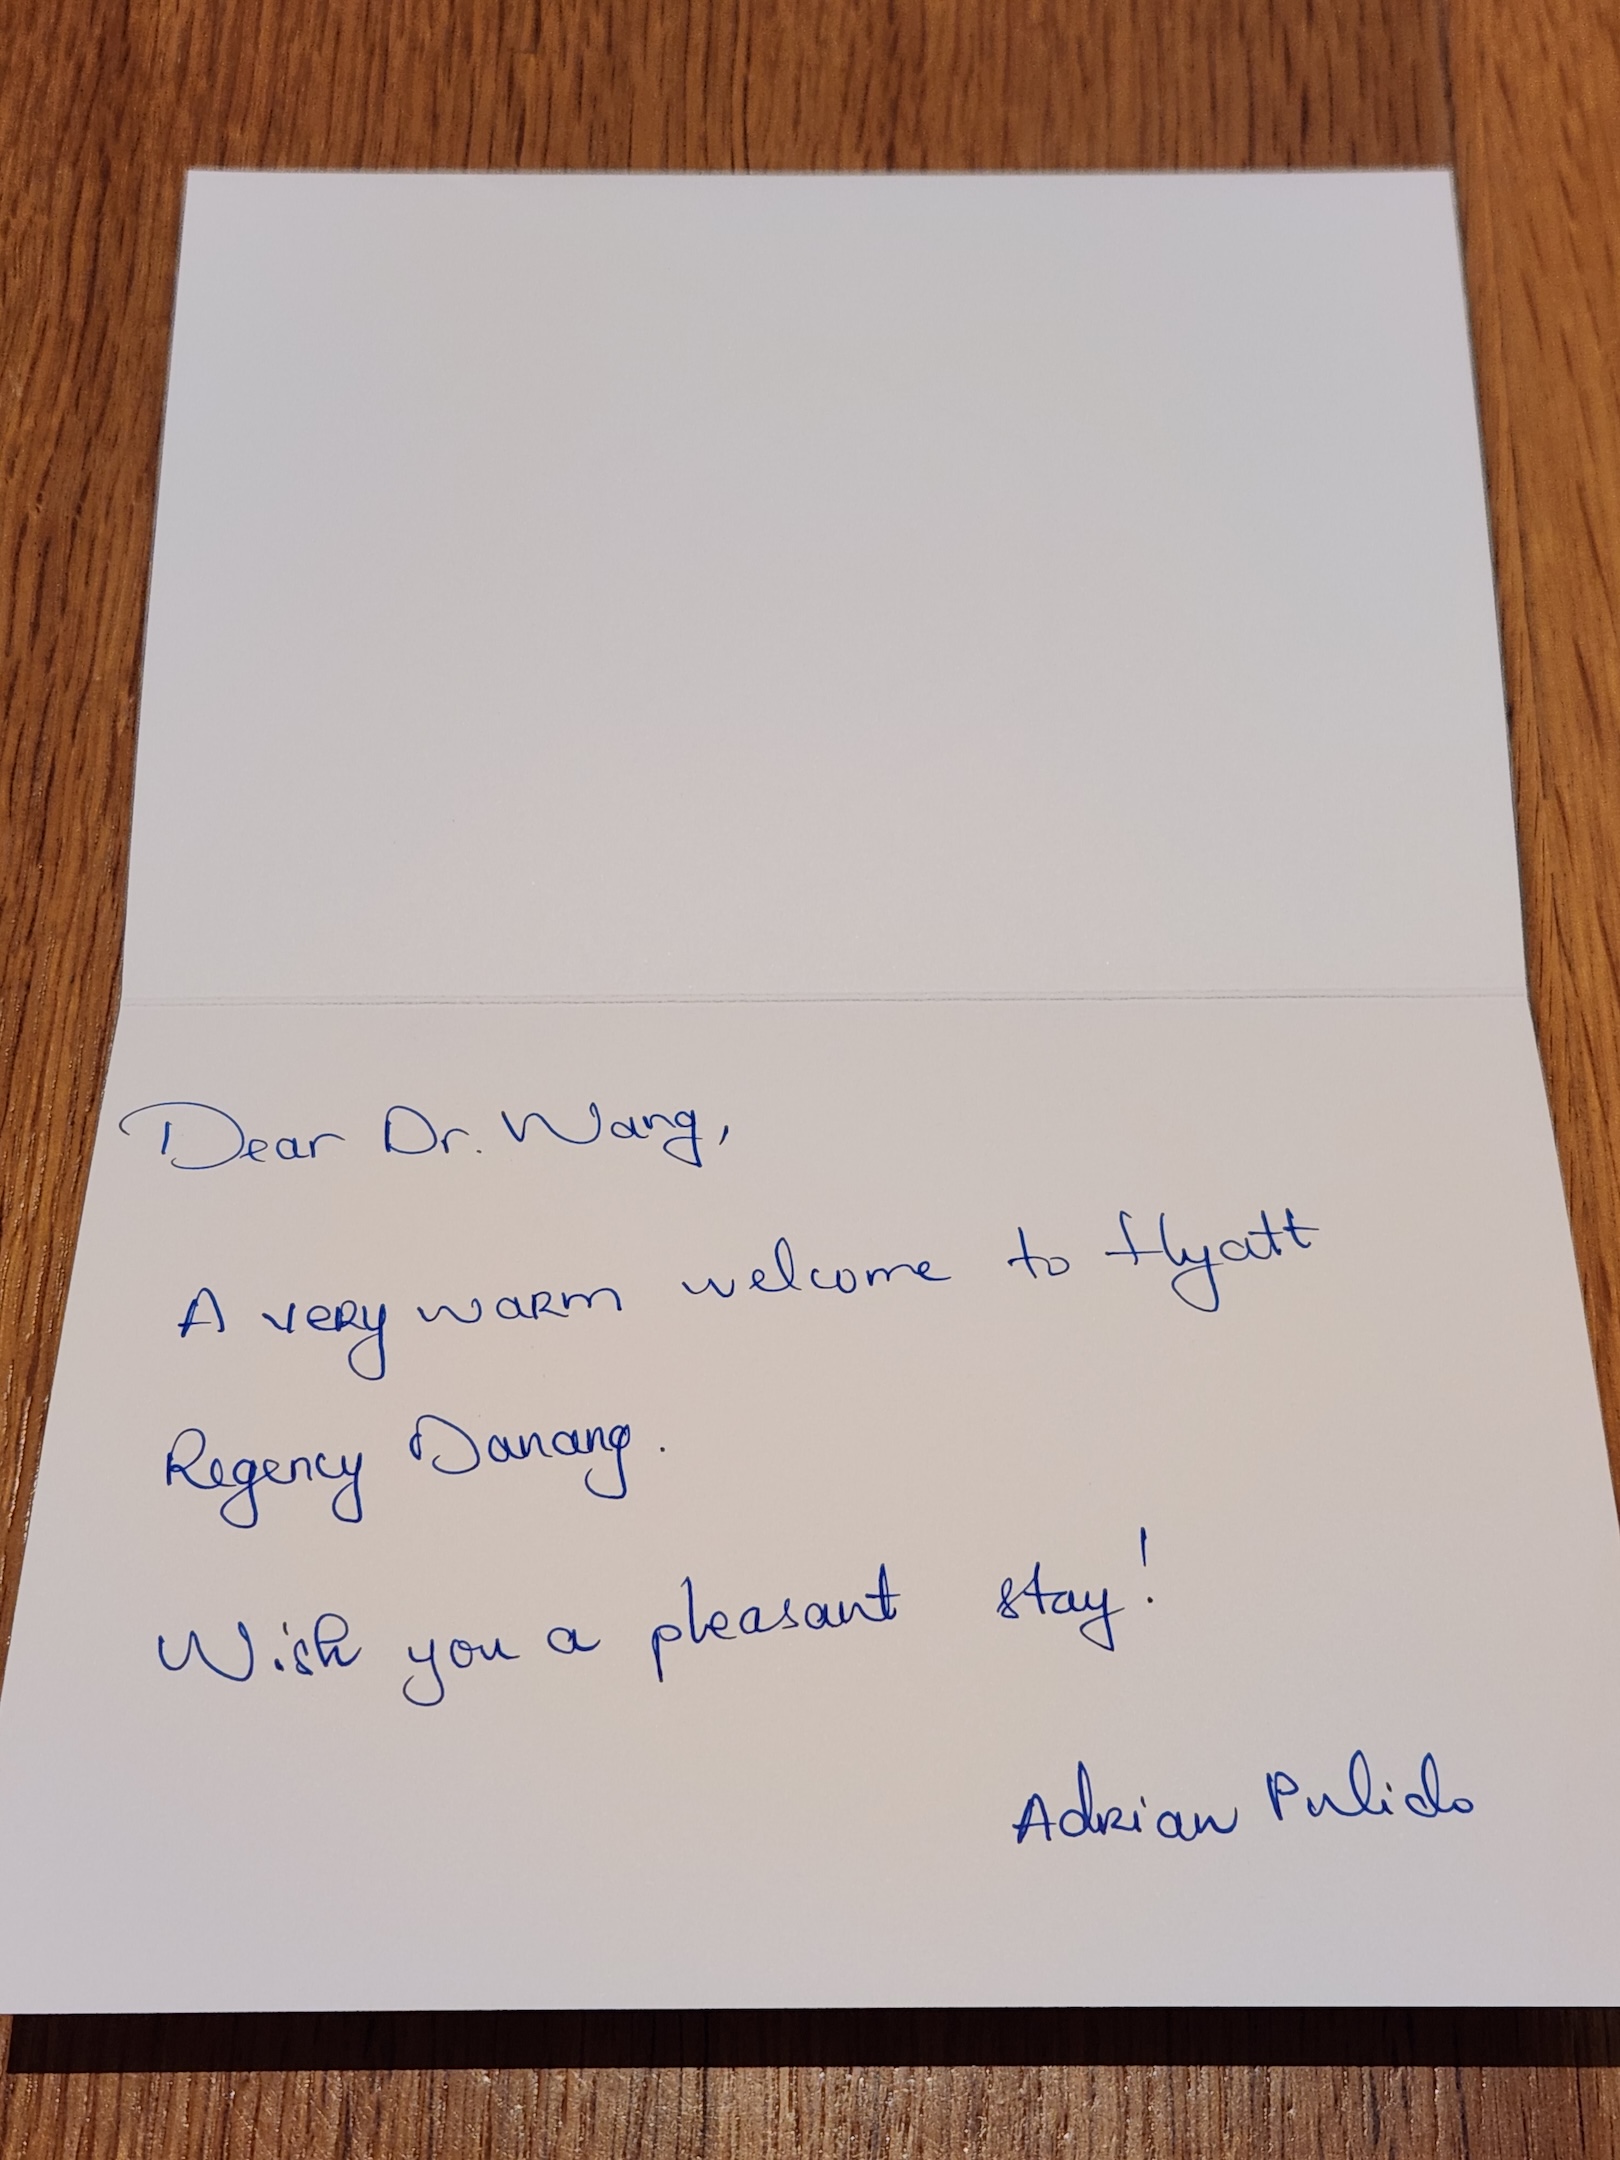 Dear Dr. Wang,
A very warm welcome to Hyatt
Regency Danang.
Wish you a pleasant stay!
Adrian Pulido